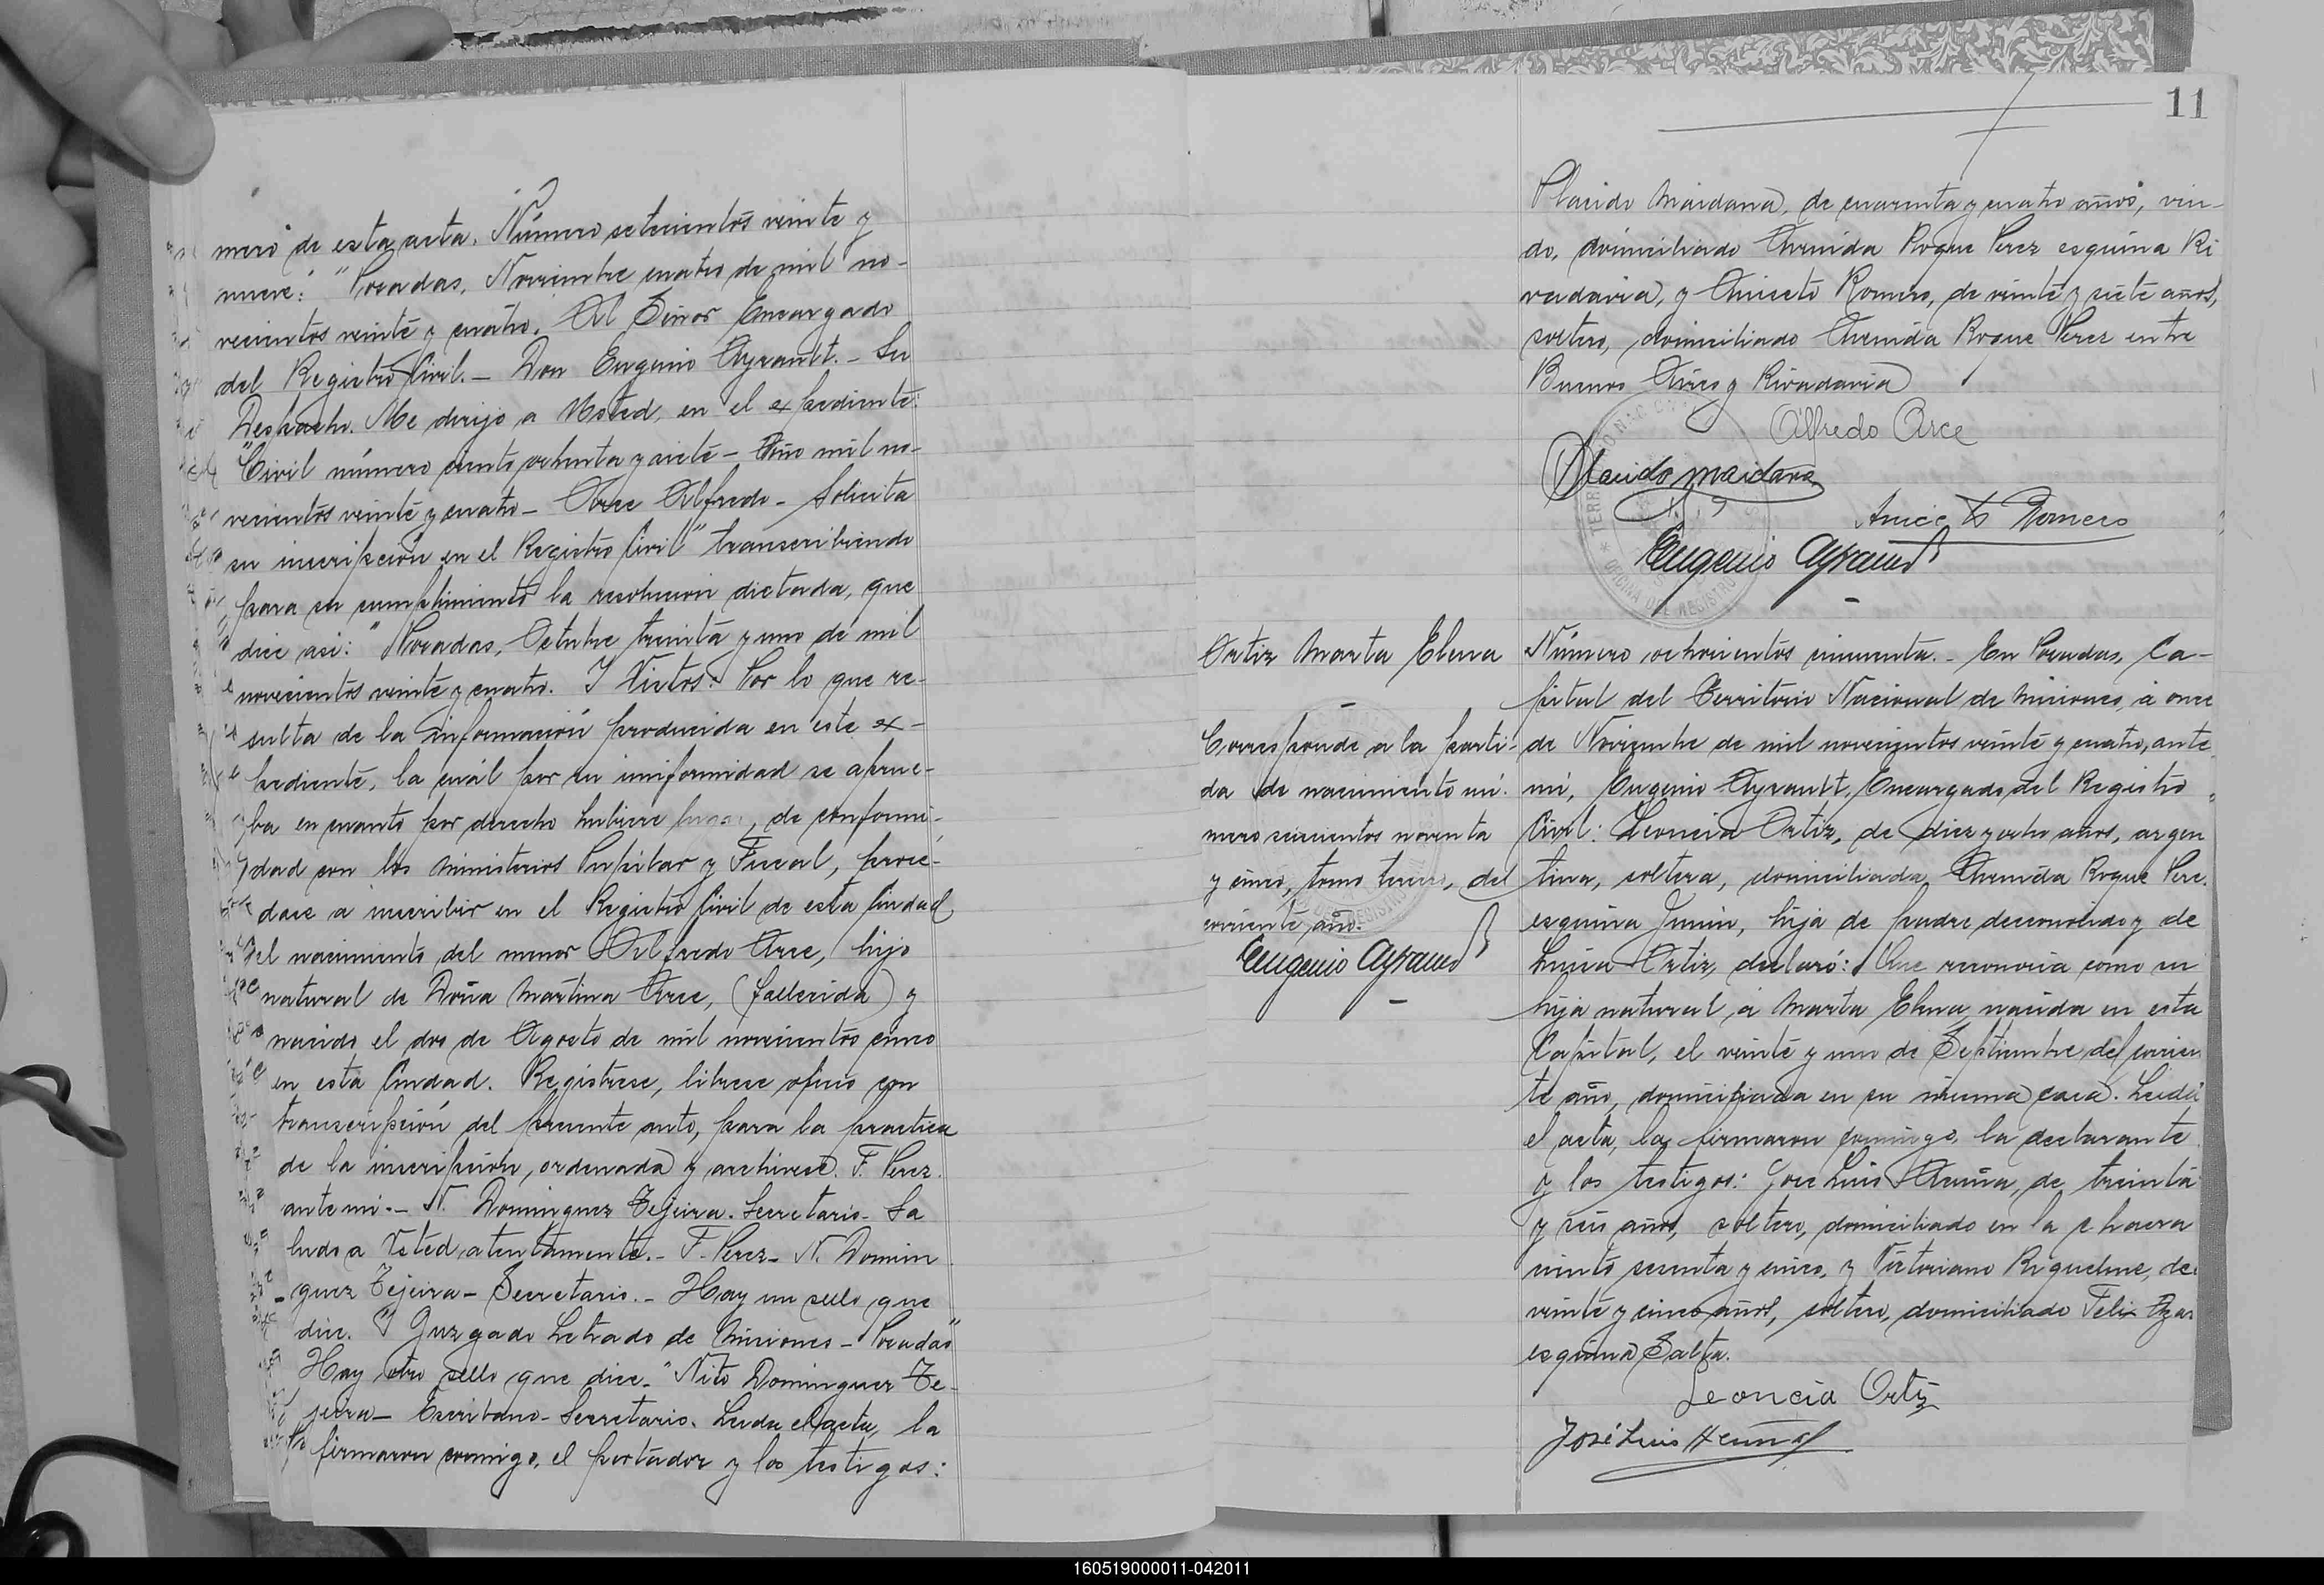 mero de esta acta. Número setecientos veinte y
nueve: "Posadas, Noviembre cuatro de mil no-
vecientos veinte y cuatro. Al Señor Encargado
del Registro Civil. - Don Eugenio Ayrault. - Su
Despacho. Me dirijo a Usted, en el expediente:
"Civil número ciento ochenta y siete - Año mil no-
vecientos veinte y cuatro - Arce Alfredo - Solicita
su inscripción en el Registro Civil" transcribiendo
para su cumplimiento la resolucion dictada, que
dice asi: "Posadas, Octubre treinta y uno de mil
novecientos veinte y cuatro. Y Vistos: Por lo que re-
sulta de la información producida en este ex-
pediente, la cuál por su uniformidad se aprue-
ba en cuanto por derecho hubiere lugar, de conformi-
dad con los Ministerios Pupilar y Fiscal, procé-
dase a inscribir en el Registro Civil de esta Ciudad
el nacimiento del menor Alfredo Arce, hijo
natural de Doña Martina Arce, (fallecida) y
nacido el dos de Agosto de mil novecientos cinco
en esta Ciudad. Registrese, librese oficio con
transcripción del presente auto, para la practica
de la inscripción, ordenada y archivese. F. Perez.
ante mi. - N. Dominguez Tejeira. Secretario - Sa
ludo a Usted atentamente. - F. Perez - N. Domin
guez Tejeira - Secretario. - Hay un sello que
dice. "Juzgado Letrado de Misiones - Posadas"
Hay otro sello que dice - "Nito Dominguez Te-
jeira - Escribano - Secretario. Leida el acta, la
firmaron conmigo, el portador y los testigos:
11
Placido Maidana, de cuarenta y cuatro años, viu-
do, domiciliado Avenida Roque Perez esquina Ri
vadavia, y Aniceto Romero, de veinte y siete años,
soltero, domiciliado Avenida Roque Perez entre
Buenos Aires y Rivadavia
Alfredo Arce
Placido Maidana
Aniceto Romero
Eugenio Ayrault
Ortiz Marta Elena
Corresponde a la parti-
da de nacimiento nú-
mero seiscientos noventa
y cinco, tomo tercero, del
corriente año.
Eugenio Ayrault
Número ochocientos cincuenta. - En Posadas, Ca-
pital del Territorio Nacional de Misiones, á once
de Noviembre de mil novecientos veinte y cuatro, ante
mi, Eugenio Ayrault, Encargado del Registro
Civil: Leoncia Ortiz, de diez y ocho años, argen
tina, soltera, domiciliada Avenida Roque Pere
esquina Junin, hija de padre desconocido y de
Lucia Ortiz, declaró: Que reconocia como su
hija natural, á Marta Elena, nacida en esta
Capital, el veinte y uno de Septiembre del corrien
te año, domiciliada en su misma casa. Leida
el acta, la firmaron conmigo, la declarante
y los testigos: Jose Luis Acuña, de treinta
y seis años, soltero, domiciliado en la chacra
ciento sesenta y cinco, y Victoriano Riquelme, de
veinte y cinco años, soltero, domiciliado Felix Azar
esquina Salta.
Leoncia Ortiz
José Luis Acuña
160519000011-042011